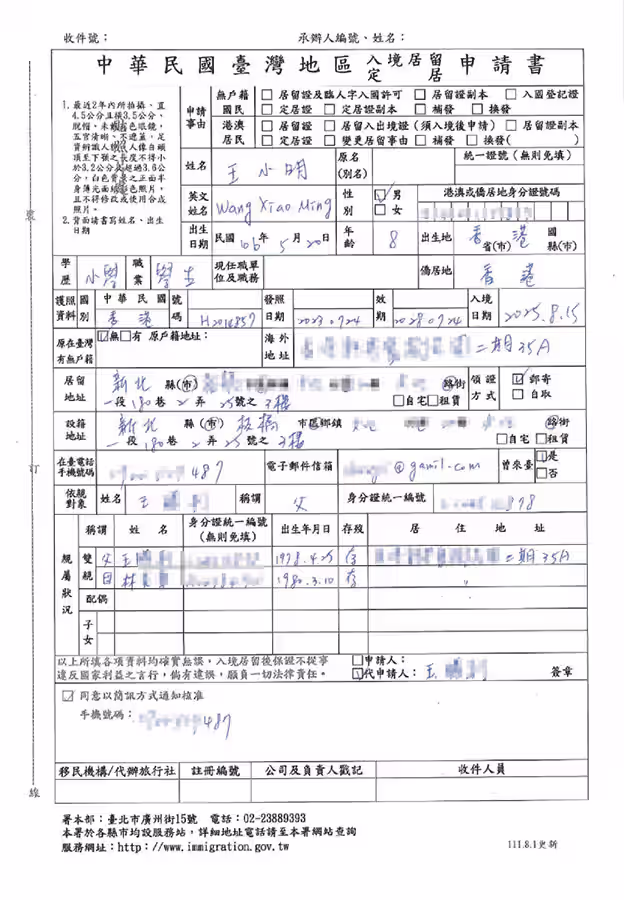 收件號： 承辦人編號、姓名：
中華民國臺灣地區 入境居留 定居 申請書
1. 最近2年內所拍攝、直
4.5公分且橫3.5公分、
脫帽、未戴有色眼鏡，
五官清晰、不遮蓋，足
資辨識人貌，人像自頭
頂至下顎之長度不得小
於3.2公分及超過3.6公
分，白色背景之正面半
身薄光面紙彩色照片，
且不得修改或使用合成
照片。
2. 背面請書寫姓名、出生
日期
申請事由
無戶籍國民 □居留證及臨人字入國許可 □居留證副本 □入國登記證
□定居證 □定居證副本 □補發 □換發
港澳居民 □居留證 □居留入出境證（須入境後申請） □居留證副本
□定居證 □變更居留事由 □補發 □換發( )
姓名 王小明 原名(別名) 統一證號（無則免填）
英文姓名 Wang Xiao Ming 性別 ☑男 □女 港澳或僑居地身分證號碼
出生日期 民國 106年 5月 20日 年齡 8 出生地 香港 國 省(市) 縣(市)
學歷 小學 職業 學生 現任職單位及職務 僑居地 香港
護照資料 國別 中華民國 香港 號碼 H2016857 發照日期 2023.07.24 效期 2028.07.24 入境日期 2025.8.15
原在臺灣有無戶籍 ☑無□有 原戶籍地址： 海外地址 二期35A
居留地址 新北 縣(市) 路街
一段180巷2弄25號之3樓 □自宅□租賃
領證方式 ☑郵寄 □自取
設籍地址 新北 縣(市) 板橋 市區鄉鎮 路街
一段180巷2弄25號之3樓 □自宅□租賃
在臺電話手機號碼 487 電子郵件信箱 @gamil.com 曾來臺 ☑是 □否
依親對象 姓名 王 稱謂 父 身分證統一編號 878
親屬狀況 稱謂 姓名 身分證統一編號（無則免填） 出生年月日 存歿 居住地址
雙親 父 王 1978.4.25 存 二期35A
母 林 1980.3.10 存 〃
配偶
子女
以上所填各項資料均確實無誤，入境居留後保證不從事
違反國家利益之言行，倘有違誤，願負一切法律責任。
□申請人：
☑代申請人：王 簽章
☑同意以簡訊方式通知核准
手機號碼： 487
移民機構/代辦旅行社 註冊編號 公司及負責人戳記 收件人員
署本部：臺北市廣州街15號 電話：02-23889393
本署於各縣市均設服務站，詳細地址電話請至本署網站查詢
服務網址：http://www.immigration.gov.tw
111.8.1更新
裏
訂
線